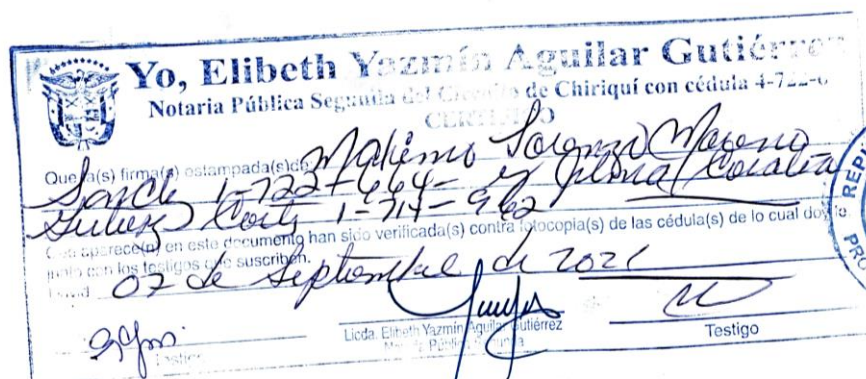 Yo, Elibeth Yazmín Aguilar Gutiérrez
Notaria Pública Segunda del Circuito de Chiriquí con cédula 4-722-6
CERTIFICO
Que la(s) firma(s) estampada(s) de Maximo Lorenzo Moreno
1-722-664- y
Cortz 1-714-962
Que aparece(n) en este documento han sido verificada(s) contra fotocopia(s) de las cédula(s) de lo cual doy fe.
junto con los testigos que suscriben.
David 07 de Septiembre de 2021
Licda. Elibeth Yazmín Aguilar Gutiérrez
Notaria Pública Segunda
Testigo
Testigo
REP
PRO